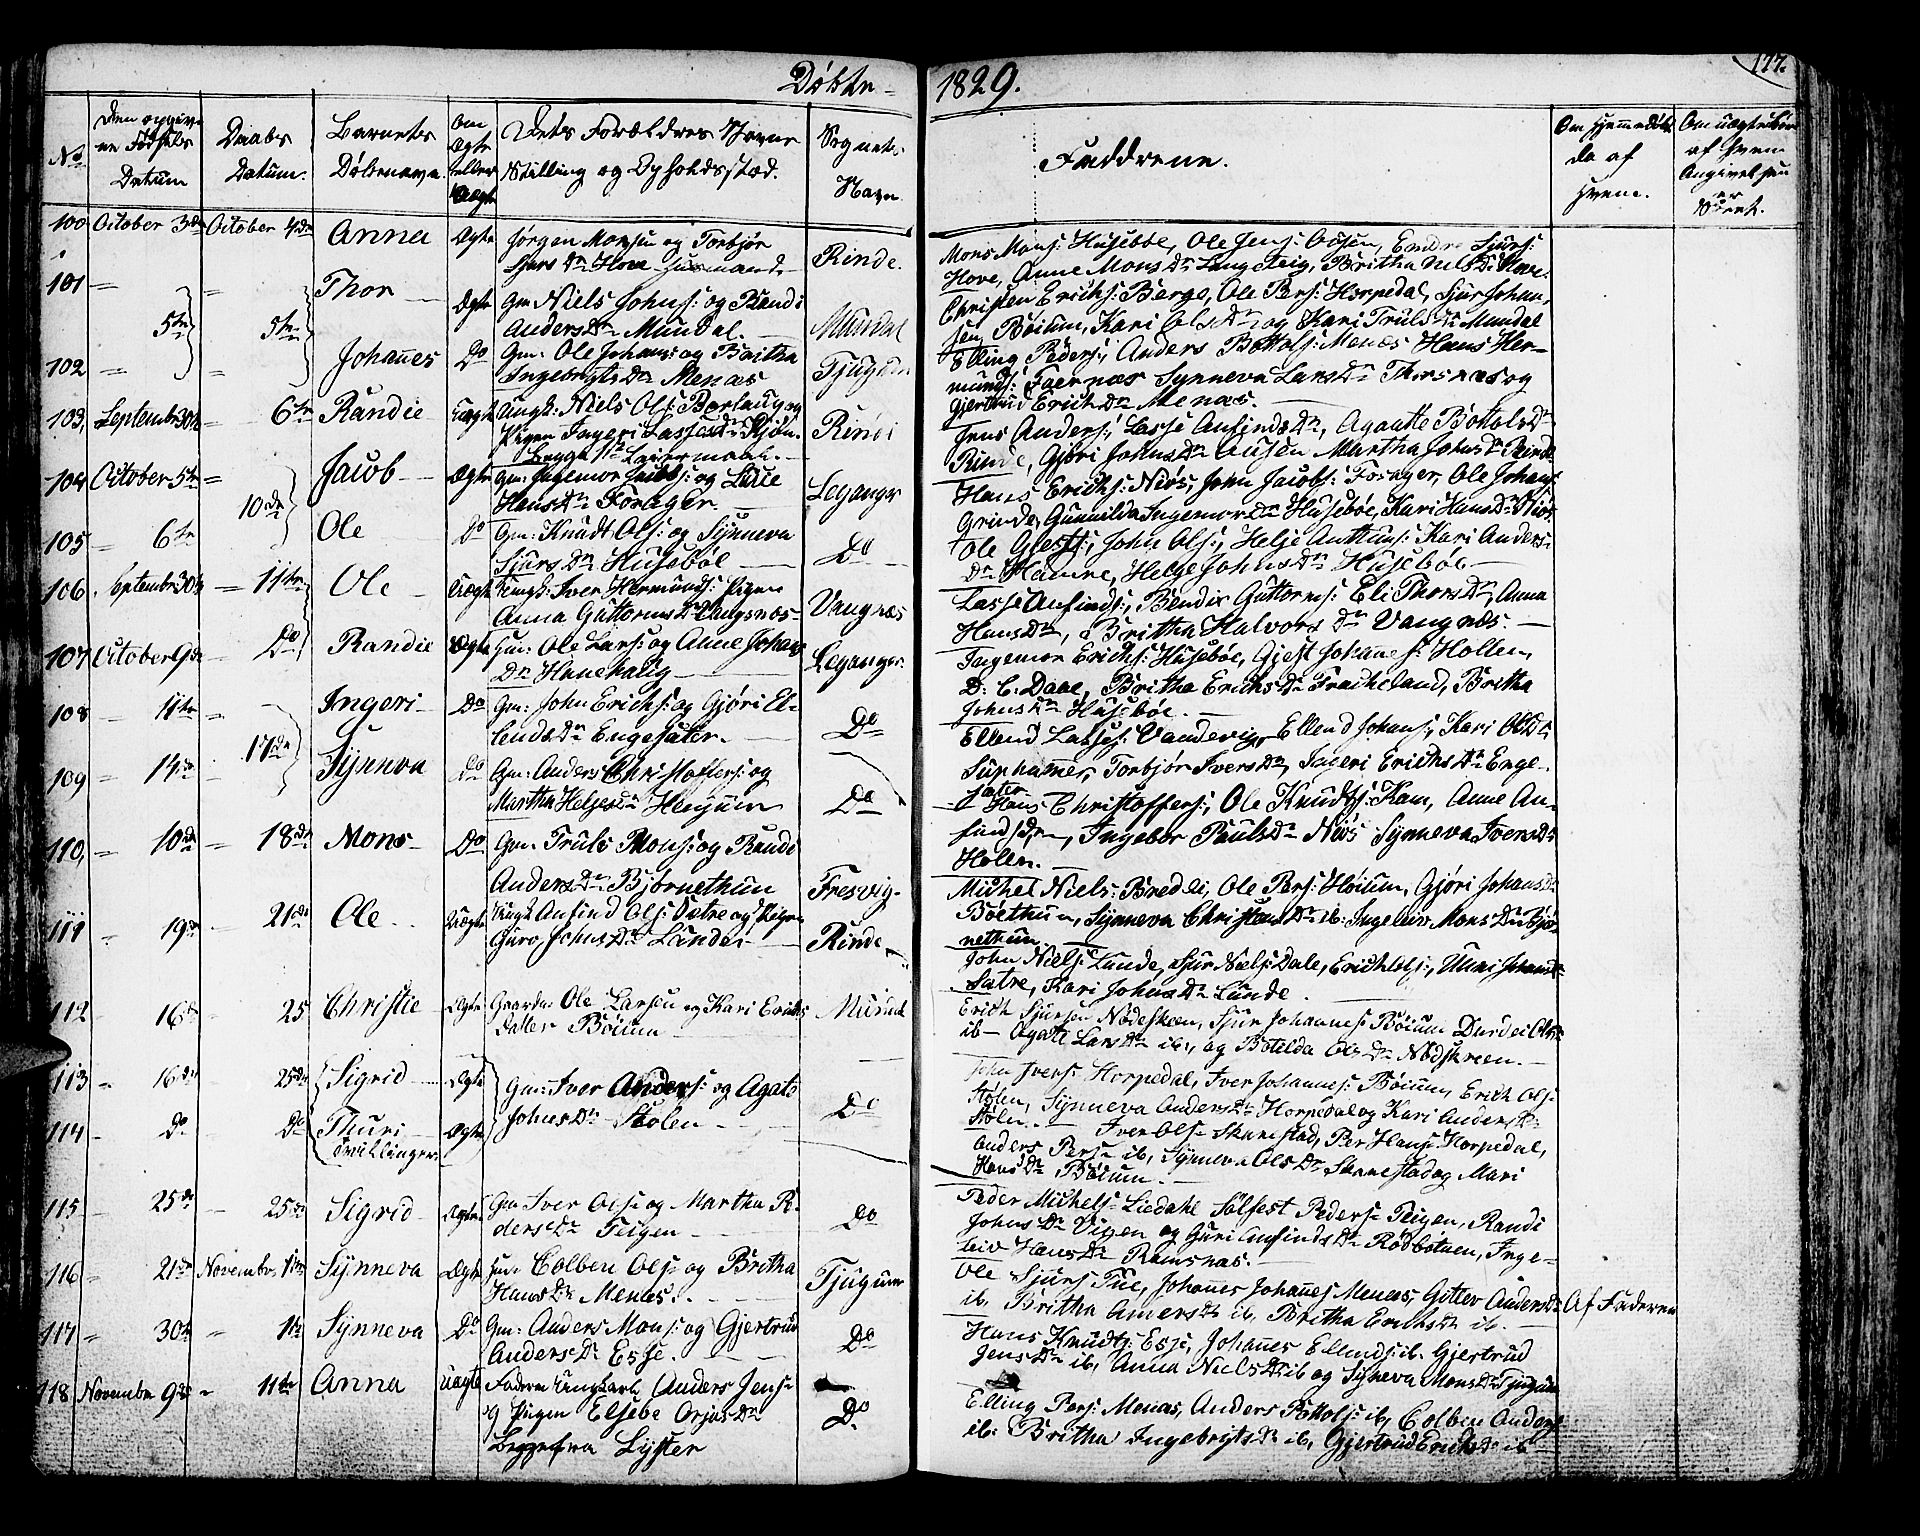 Döbte - 1829. 177.
No
Den opgivene Fødsels Datum
Daabs Datum.
Barnets Döbenavn.
Om Ægte eller Uægte
Dets Forældres Navne Stilling og Opholdssted.
Sognets Navn
Faddrene.
Om Hjemmedöbt da af Hvem.
Om uægte af Hvem Angivelsen er Skeet.
100 October 3die October 4de Anna Ægte Jörgen Monsen og Torbjör
Sjurs Dr Hove Husmand Rinde.
Mons Mons: Husebøe, Ole Jens: Endre Sjurs:
Hove, Anne Mons Dr Langsteig, Britha Nels Dr Hove.
101 5te 5te Thor Ægte Gm Niels Johns: og Randi
Anders Dr Mundal. Mundal
Christen Erichs: Berge, Ole Pers: Horpedal, Sjur Johan-
sen Böium, Kari Ols Dr og Kari Truls Dr Mundal
102 Johañes Do Gm: Ole Johans: og Britha
Ingebrigts Dr Menæs Tjugum
Elling Peders: Anders Bottols: Menæs Hans Her-
munds: Faernæs Synneva Lars Dr Thorsnæs og
Gjertrud Erichs Dr Menæs
103, Septembr 30te 6te Randie Uægte Ungk: Niels Ols: Berlaug og
Pigen Ingeri Lasses Dr
begge 1te Leiermaal. Rindi
Jens Anders: Lasse Anfinds Dr, Agaathe Bottols Dr
Rinde, Gjöri Johns Dr Martha Johns Dr Rinde
104 October 5te 10de Jacob Ægte Gm: Ingemor Jacobs: og Lucie
Hans Dr Forager Leganger
Hans Erichs: Niös, John Jacobs: Forager, Ole Johans:
Grinde, Gunnilda Ingemor Dr Husebøe, Kari Hans Dr Niös
105 6te Ole Do Gm: Knudt Ols: og Synneva
Sjurs Dr Husebøe Do
Ole Gjests: John Ols: Helje Anthuns: Kari Anders
Dr Hamre, Helge Johns Dr Husebøe
106 Septembr 30te 11te Ole Uægte Ungk: Iver Hermunds: Pigen
Anna Guttorms Dr Vangsnæs Vangnæs
Lasse Anfinds: Bendix Guttorms: Eli Thors Dr, Anna
Hans Dr, Britha Halvors Dr Vangnæs.
107 October 9de Do Randie Ægte Hm: Ole Lars: og Anne Johans
Dr Hanehaug Leganger
Ingemor Erichs: Husebøe, Gjest Johannes: Hollen,
D: C: Daae, Britha Erichs Dr Britha
Johns Dr Husebøe.
108 11te 17de Ingeri Do Gm: John Erichs: og Gjöri El-
lends Dr Engesæter. Do
Ellend Lasses: Ellend Johans: Kari Ols Dr
Suphammer, Torbjör Ivers Dr, Ingeri Erichs Dr Enge-
sæter
109 14de Synneva Do Gm: Anders Christoffers: og
Martha Heljes Dr Henjum Do
Hans Christoffers: Ole Knudts: Anne An-
finds Dr, Ingebor Pauls Dr Niös Synneva Ivers Dr
Holen.
110, 10de 18de Mons Do Gm: Truls Mons: og Randi
Anders Dr Björnethun Fresvig
Michel Niels: Bredei, Ole Pers: Höium, Gjöri Johans Dr
Böethun, Synneva Christens Dr ib: Ingeleiv Mons Dr Bjö-
nethun.
111 19de 21de Ole Uægte Ungk Anfind Ols: Sætre og Pigen
Guro Johns Dr Lunde Rinde
John Niels: Lunde, Sjur Niels: Dale, Erich Ols:
Sætre, Kari Johns Dr Lunde.
112 16de 25 Christie Ægte Gaardm: Ole Larsen og Kari Erichs
datter Böium Mundal
Erich Sjursen Nødeskreen, Sjur Johannes: Böium Durdei Ols Dr
ib - Agate Lars Dr ib:, og Botilda Ols Dr Nødskreen.
113 16de 25de Sigrid Ægte Gm: Iver Anders: og Agate
114 Do Do Thuri Tvillinger. Ægte Johns Dr Stölen Do
John Ivers: Horpedal, Iver Johannes: Böium, Erich Ols:
Stölen, Synneva Anders Dr Horpedal og Kari Anders Dr
Stölen. Iver Ols: Skarestad, Per Hans: Horpedal,
Anders Pers: ib, Synneva Ols Dr Skarestad og Mari
Hans Dr Böium.
115 25de 25de Sigrid Ægte Gm Iver Ols: og Martha Pe-
ders Dr Teigen Do
Peder Michels: Liedahl Sølfest Peders: Teigen, Randi
Johns Dr og Guri Anfinds Dr Rødbotnen, Inge-
leiv Hans Dr Ramsnæs.
116 21de Novembr 1ste Synneva Ægte Hm: Colben Ols: og Britha
Hans Dr Menes. Tjugum
Ole Sjurs: Tue, Johannes Johannes: Menæs, Gitlev Anders Dr
ib, Britha Amers Dr ib, Britha Erichs Dr ib. Af Faderen
117 30te 1te Synneva Do Gm: Anders Mons: og Gjertrud
Anders Dr Esse. Do
Hans Knudts: Esse, Johannes Ellends: ib. Gjertrud
Jens Dr ib, Anna Niels Dr ib og Synneva Mons Dr Tjugum
118 Novembr 9de 11te Anna Uægte Faderen Ungkarl Anders Jens:
og Pigen Elsebe Orjas Dr
Begge fra Lyster Do
Elling Pers: Menæs, Anders Bottols: ib, Colben Anders:
ib: Britha Ingebrigts Dr ib, Gjertrud Erichs Dr ib